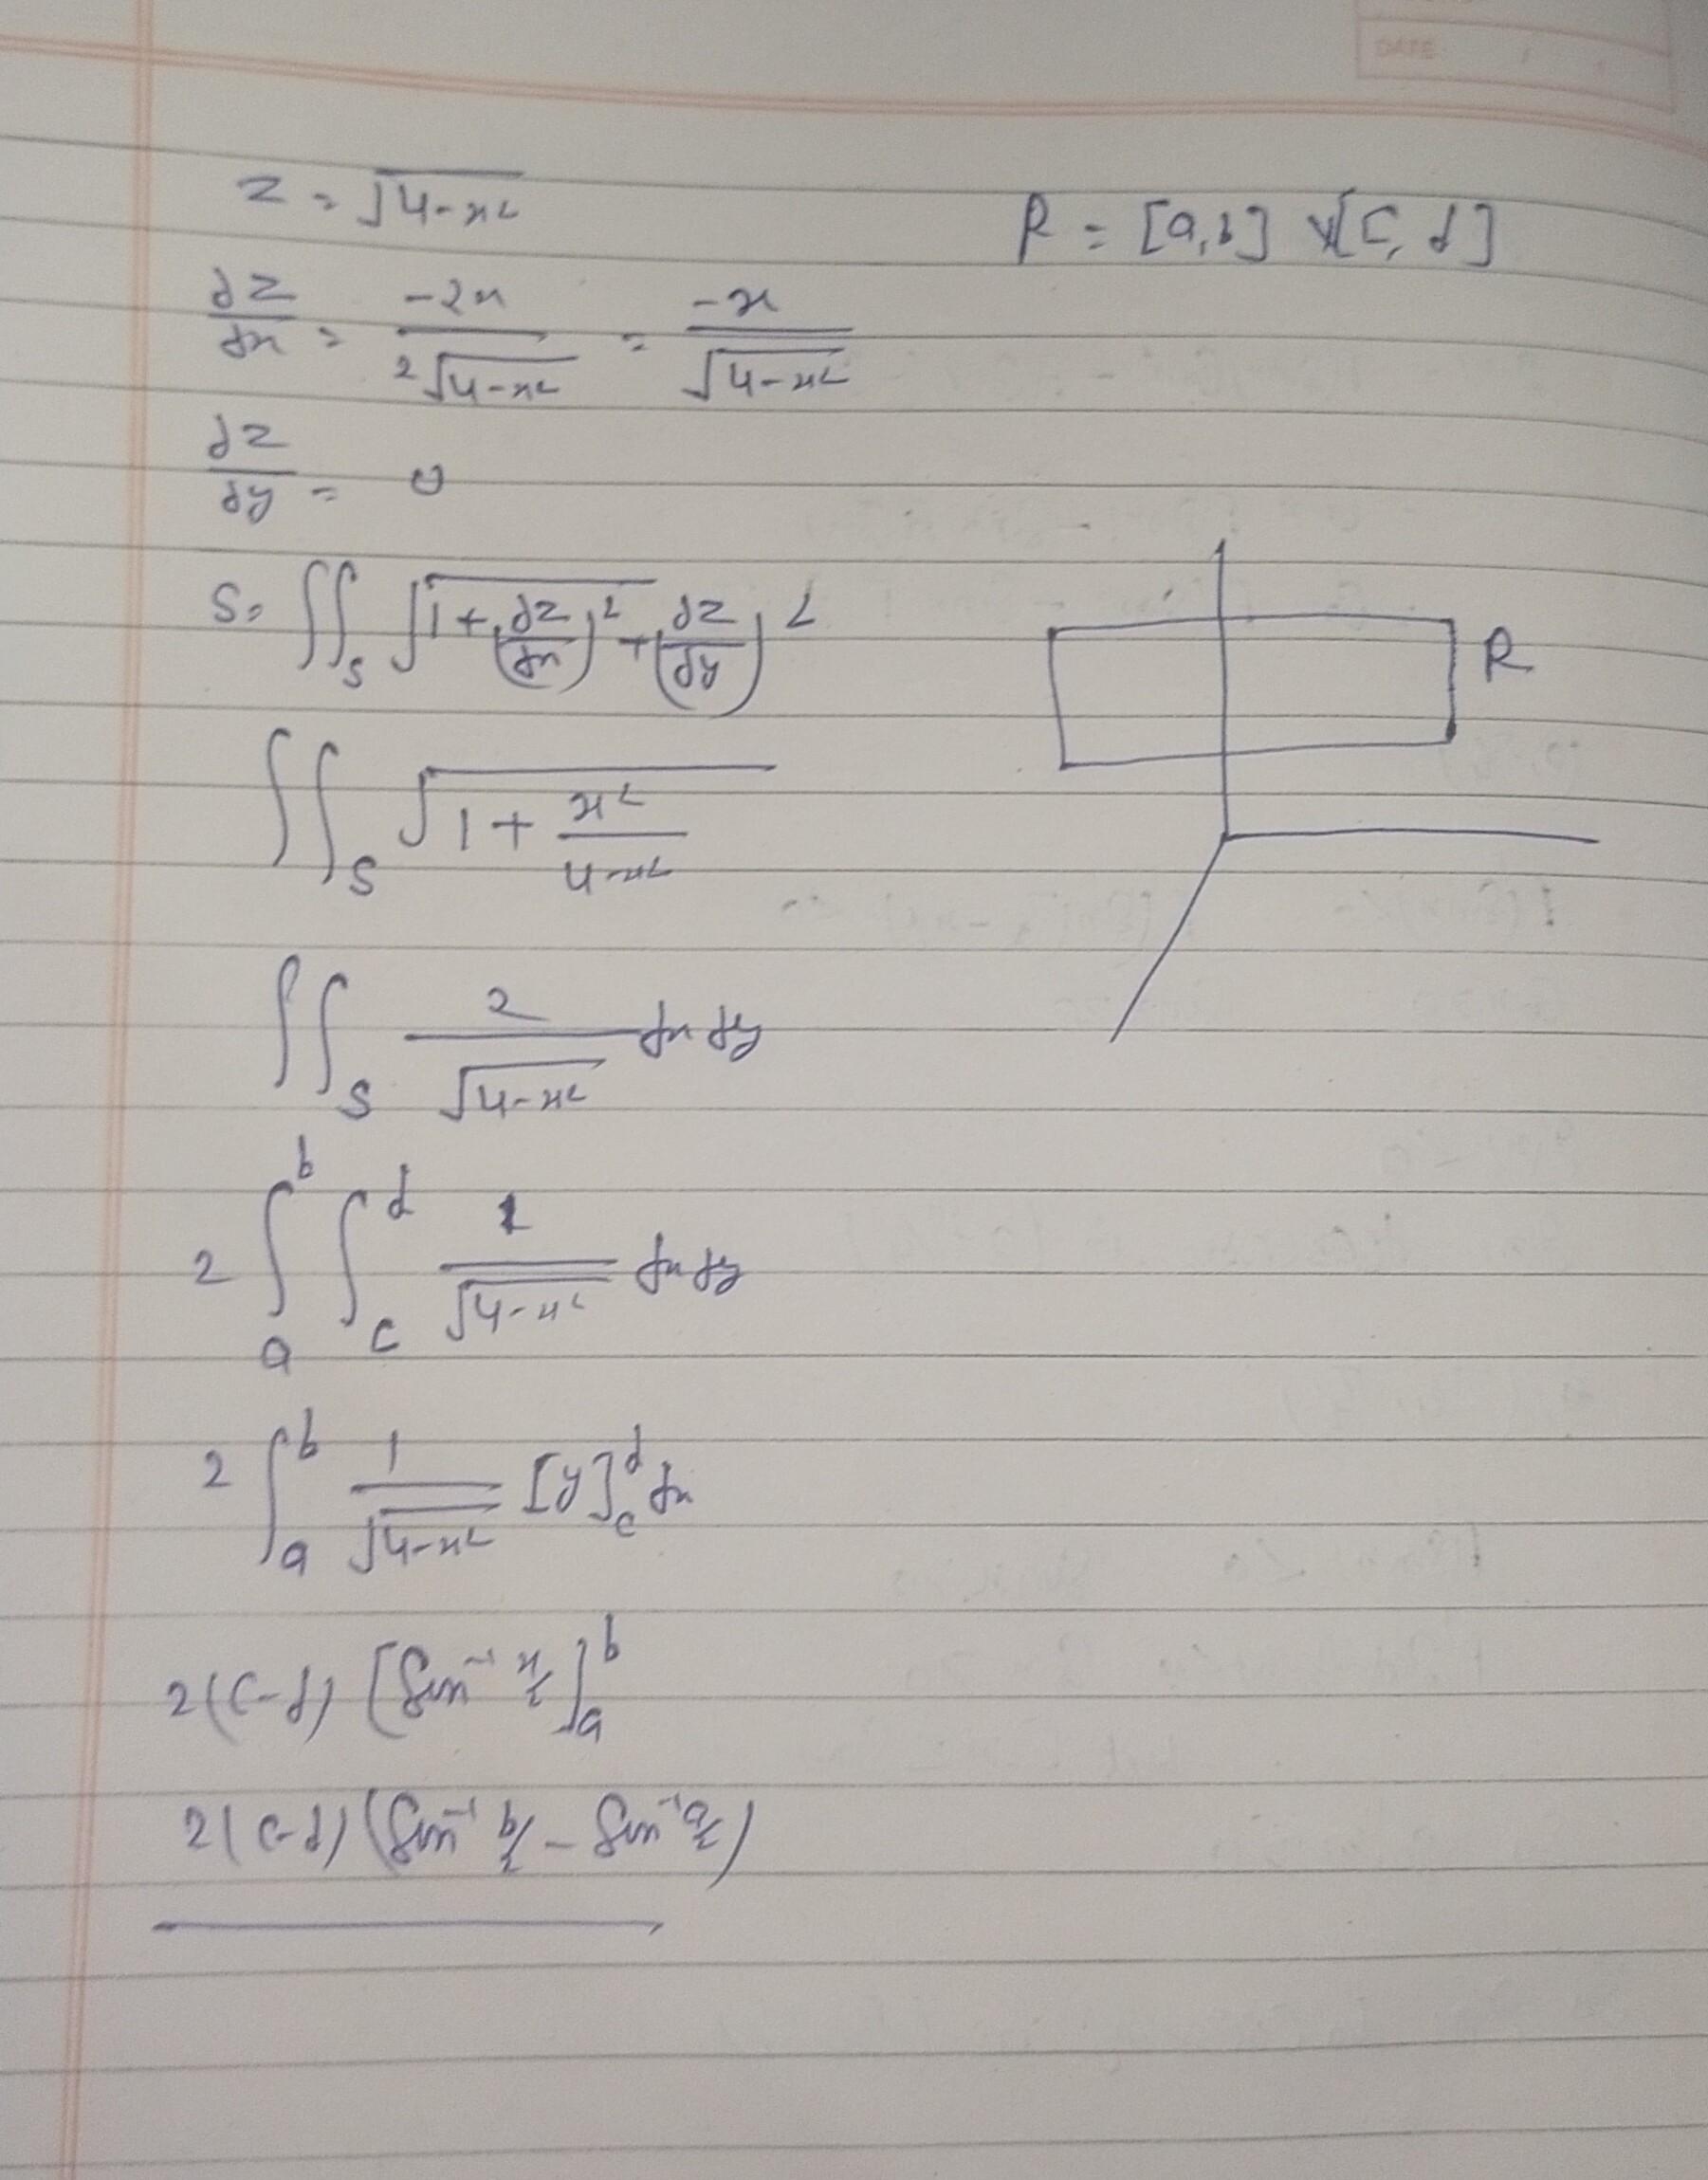 DATE
z = √(4-x²)
R = [a,b] x [c, d]
∂z/∂x = -2x/(2√(4-x²)) = -x/√(4-x²)
∂z/∂y = 0
S = ∬_S √(1+(∂z/∂x)²+(∂z/∂y)²)
R
∬_S √(1+x²/(4-x²))
∬_S 2/√(4-x²) dx dy
2 ∫_a^b ∫_c^d 1/√(4-x²) dx dy
2 ∫_a^b 1/√(4-x²) [y]_c^d dx
2(c-d) [Sin⁻¹ x/2]_a^b
2(c-d) (Sin⁻¹ b/2 - Sin⁻¹ a/2)